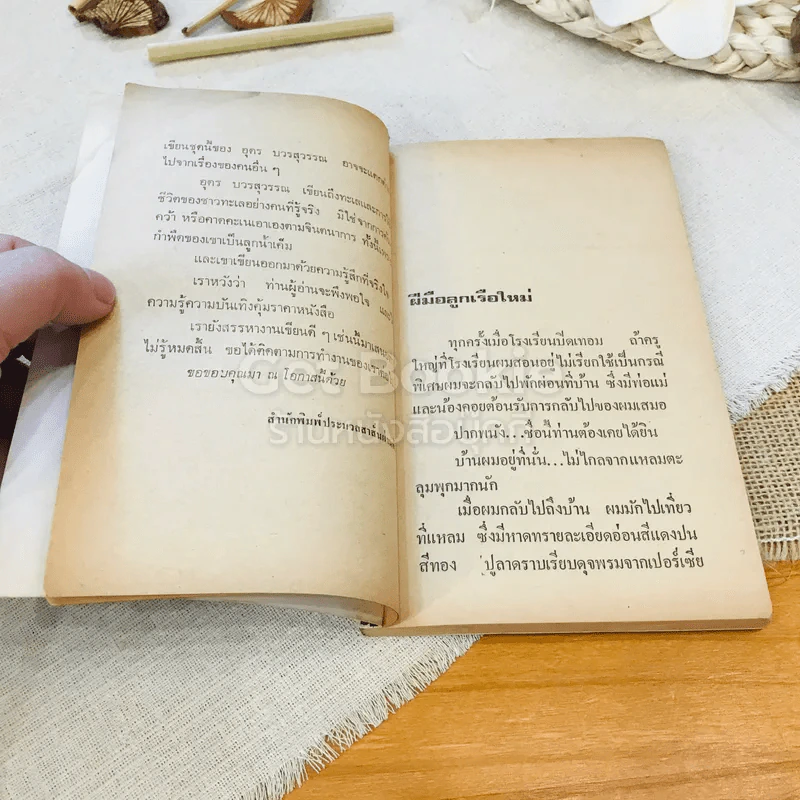 เขียนชุดนี้ของ อุดร บวรสุวรรณ อาจจะแตกต่าง
ไปจากเรื่องของคนอื่น ๆ
อุดร บวรสุวรรณ เขียนถึงทะเลและการ
ชีวิตของชาวทะเลอย่างคนที่รู้จริง มิใช่จากการ
คว้า หรือคาดคะเนเอาเองตามจินตนาการ ทั้งนี้
กำพืดของเขาเป็นลูกน้ำเค็ม
และเขาเขียนออกมาด้วยความรู้สึกที่จริงใจ
เราหวังว่า ท่านผู้อ่านจะพึงพอใจ และ
ความรู้ความบันเทิงคุ้มราคาหนังสือ
เรายังสรรหางานเขียนดี ๆ เช่นนี้มาเสนอ
ไม่รู้หมดสิ้น ขอได้ติดตามการทำงานของเรา
ขอขอบคุณมา ณ โอกาสนี้ด้วย
สำนักพิมพ์ประพันธ์สาส์น
ฝีมือลูกเรือใหม่
ทุกครั้งเมื่อโรงเรียนปิดเทอม ถ้าครู
ใหญ่ที่โรงเรียนผมสอนอยู่ไม่เรียกใช้เป็นกรณี
พิเศษผมจะกลับไปพักผ่อนที่บ้าน ซึ่งมีพ่อแม่
และน้องคอยต้อนรับการกลับไปของผมเสมอ
ปากพนัง...ชื่อนี้ท่านต้องเคยได้ยิน
บ้านผมอยู่ที่นั่น...ไม่ไกลจากแหลมตะ
ลุมพุกมากนัก
เมื่อผมกลับไปถึงบ้าน ผมมักไปเที่ยว
ที่แหลม ซึ่งมีหาดทรายละเอียดอ่อนสีแดงปน
สีทอง ปูลาดราบเรียบดุจพรมจากเปอร์เซีย
Got Bookie
ร้านหนังสือบุ๊คกี้